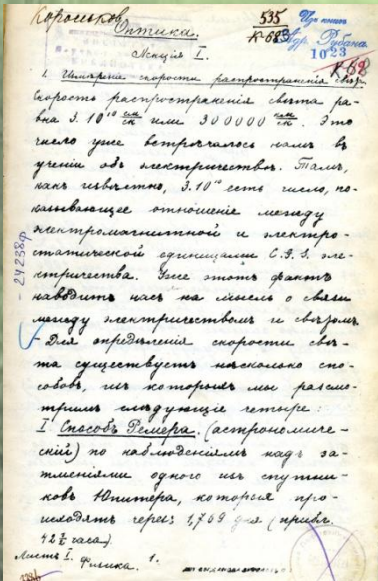 Короськов
Оптика.
535
К-683
1023
К-68
Лекція I.
1. Измѣреніе скорости распространенія свѣта.
Скорость распространенія свѣта ра-
вна 3.10¹⁰ см/ск или 300000 км/ск. Это
число уже встрѣчалось намъ въ
ученіи объ электричествѣ. Тамъ,
какъ извѣстно, 3.10¹⁰ есть число, по-
казывающее отношеніе между
электромагнитной и электро-
статической единицами C.G.S. эле-
ктричества. Уже этотъ фактъ
наводитъ насъ на мысль о связи
между электричествомъ и свѣтомъ.
Для опредѣленія скорости свѣ-
та существуетъ нѣсколько спо-
собовъ, изъ которыхъ мы разсмо-
тримъ слѣдующіе четыре:
I Способъ Ремера. (астрономиче-
скій) по наблюденіямъ надъ за-
тменіями одного изъ спутни-
ковъ Юпитера, которыя про-
исходятъ черезъ 1,769 дня (прибл.
42½ часа)
Листъ I. Физика. 1.
- 24238ф